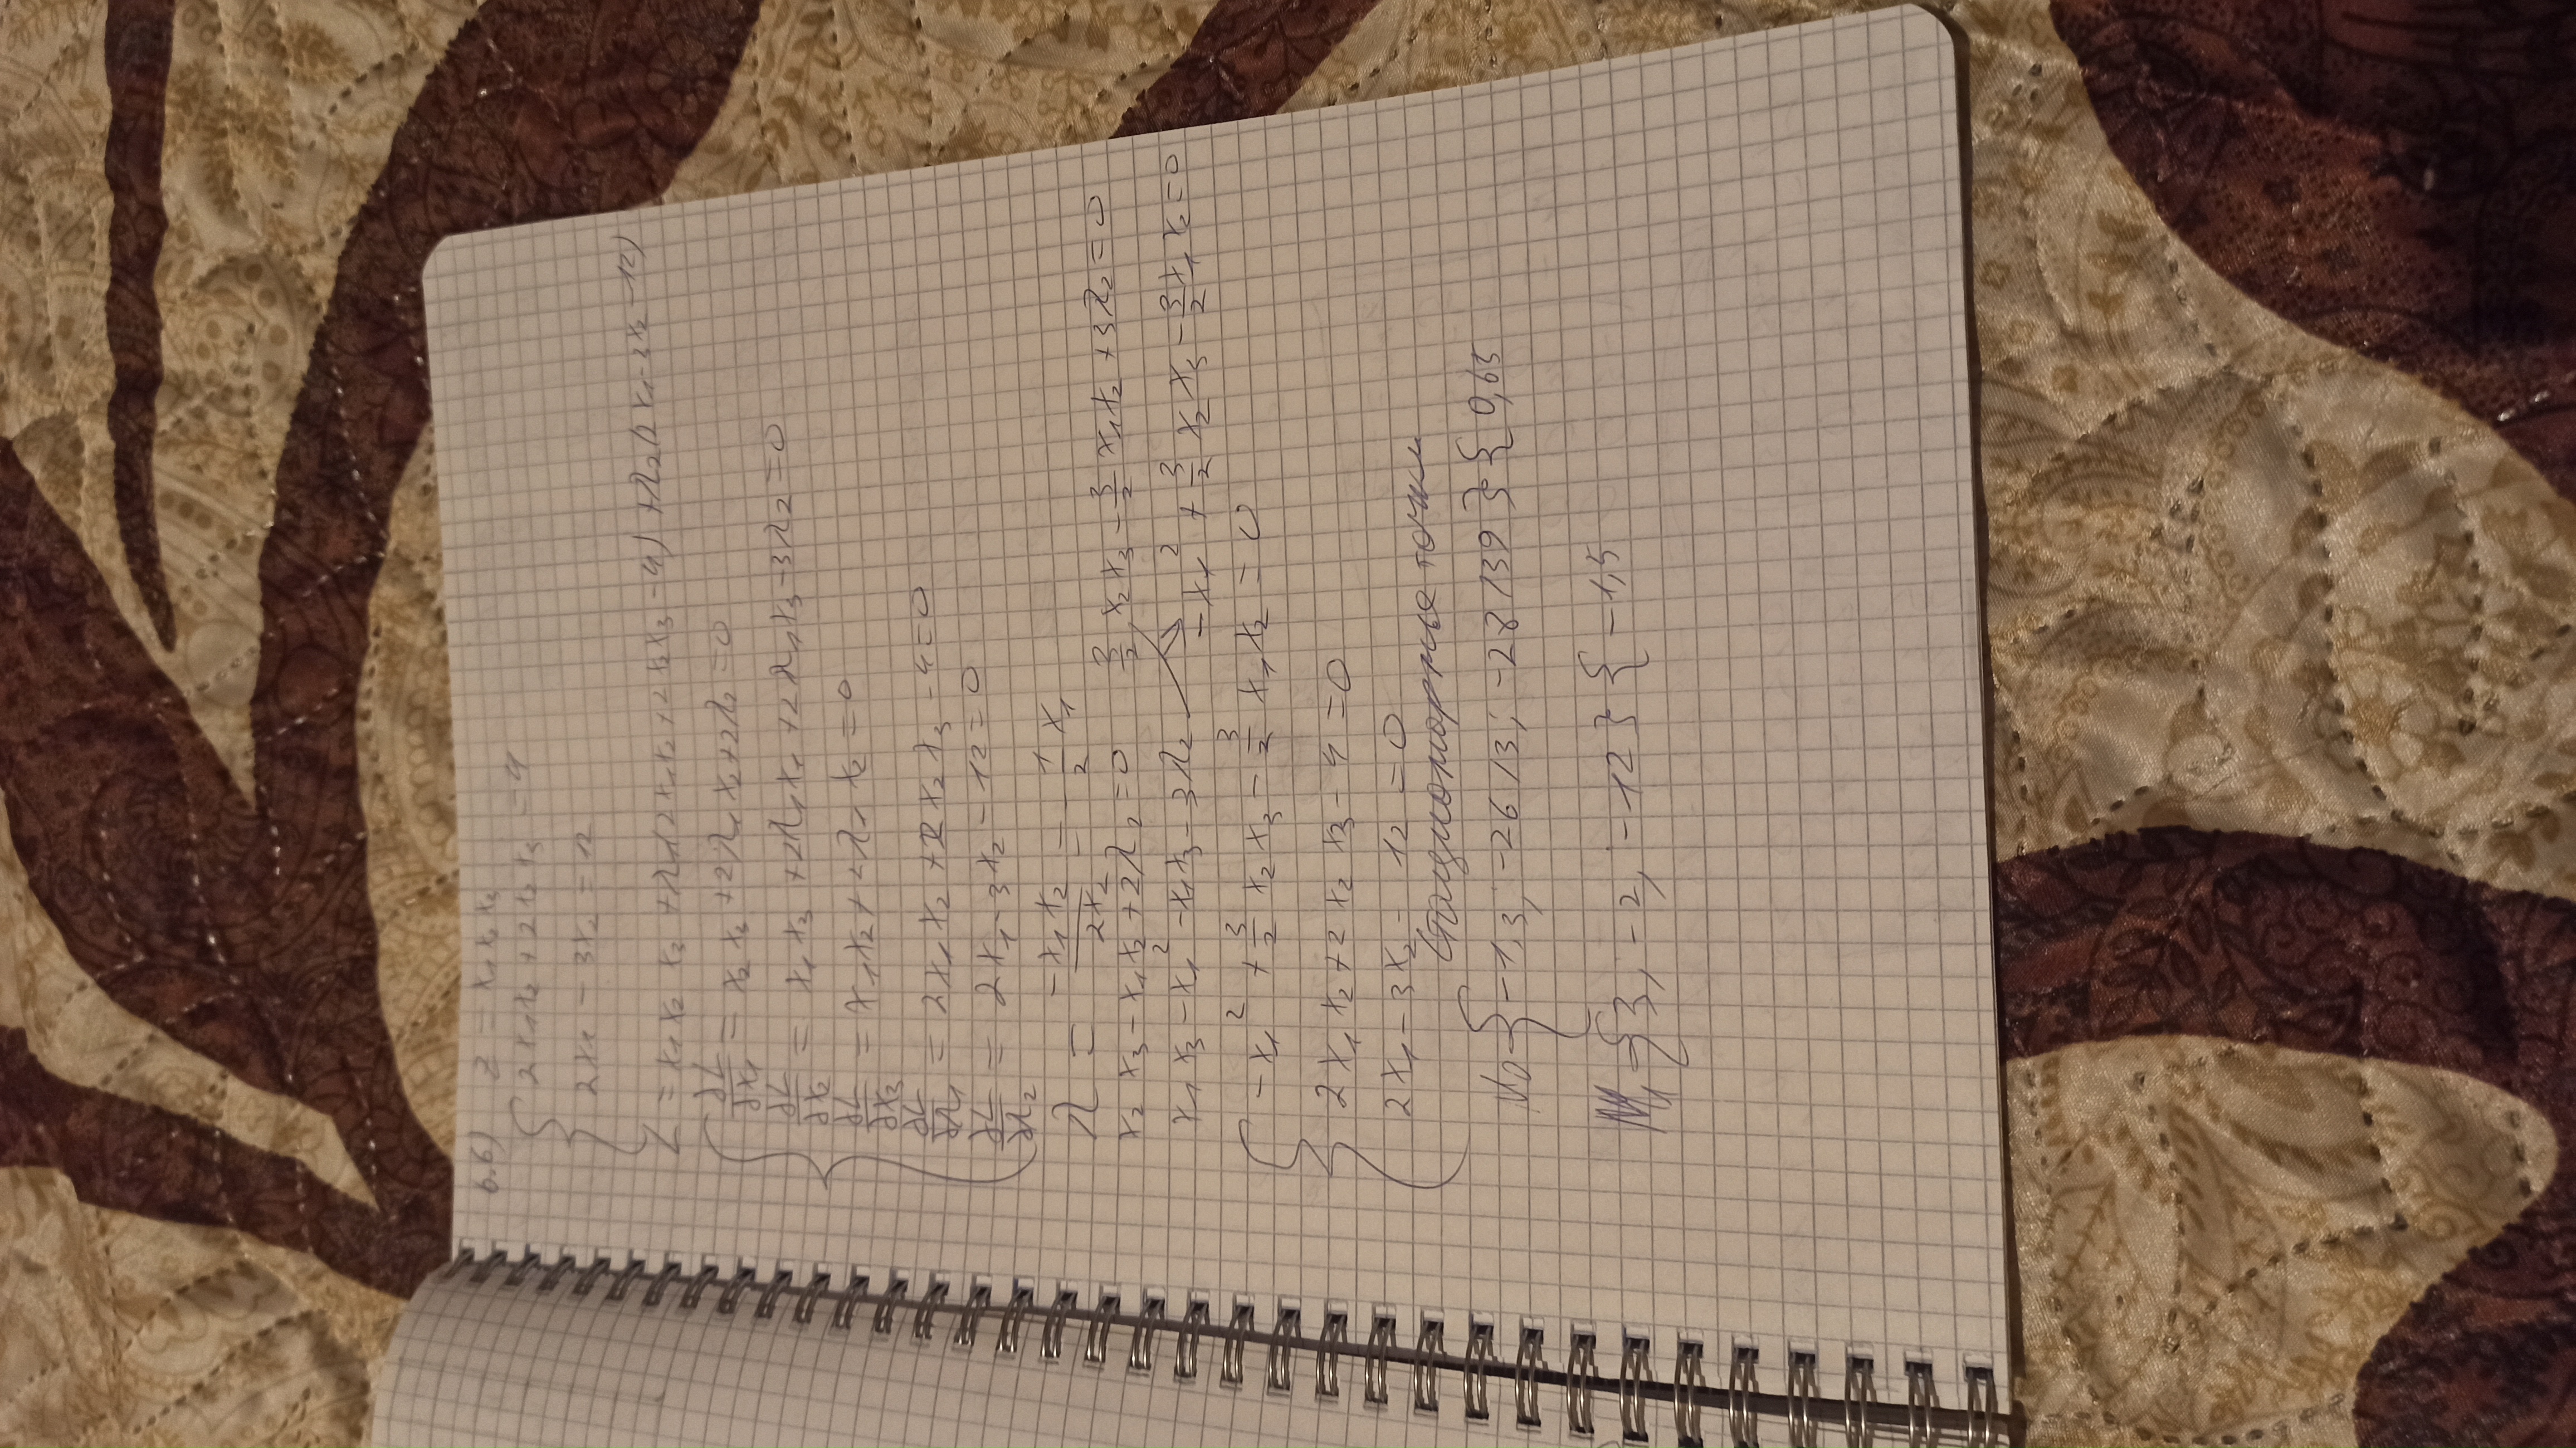 6.6) z = x₁ x₂ x₃
{ 2x₁x₂ + 2x₂x₃ = 4
2x₁ - 3x₂ = 12
L = x₁ x₂ x₃ + λ₁(2x₁x₂ + 2x₂x₃ - 4) + λ₂(2x₁ - 3x₂ - 12)
{ ∂L/∂x₁ = x₂ x₃ + 2λ₁ x₂ + 2λ₂ = 0
∂L/∂x₂ = x₁ x₃ + 2λ₁x₁ + 2λ₁x₃ - 3λ₂ = 0
∂L/∂x₃ = x₁x₂ + 2λ₁ x₂ = 0
∂L/∂λ₁ = 2x₁ x₂ + 2x₂ x₃ - 4 = 0
∂L/∂λ₂ = 2x₁ - 3x₂ - 12 = 0
λ = -x₁ x₂/2x₂ = -1/2 x₁
x₂ x₃ - x₁x₂ + 2λ₂ = 0 3/2 x₂x₃ - 3/2 x₁x₂ + 3λ₂ = 0
x₁ x₃ - x₁² - x₁x₃ - 3λ₂ → -x₁² + 3/2 x₂x₃ - 3/2 x₁x₂ = 0
{ -x₁² + 3/2 x₂x₃ - 3/2 x₁x₂ = 0
2x₁x₂ + 2x₂x₃ - 4 = 0
2x₁ - 3x₂ - 12 = 0
Стационарные точки
M₀ {-1,3; -26/3; -28/39} { 0,65
M₁ {3, -2, -12} { -1,5